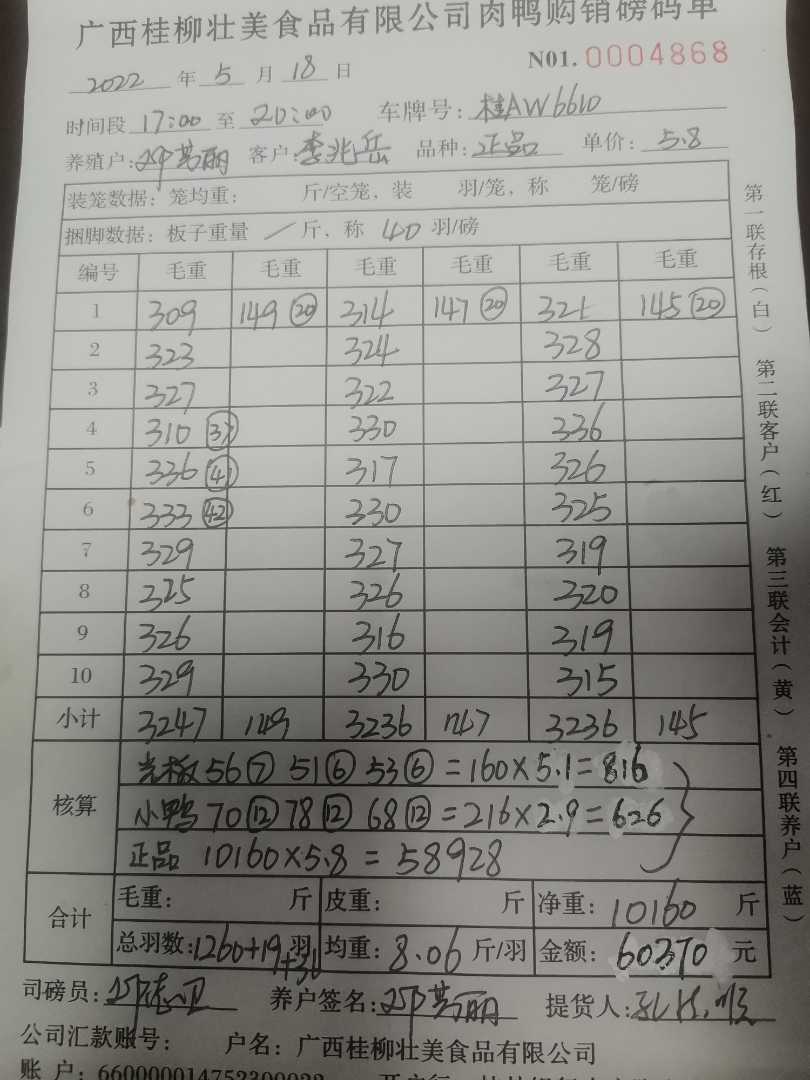 广西桂柳壮美食品有限公司肉鸭购销磅码单
N01. 0004868
2022 年 5 月 18 日
时间段 17:00 至 20:00 车牌号: 桂AW6610
养殖户: 邓芳丽 客户: 李兆岳 品种: 正品 单价: 5.8
装笼数据: 笼均重: 斤/空笼, 装 羽/笼, 称 笼/磅
捆脚数据: 板子重量 / 斤, 称 40 羽/磅
编号 毛重 毛重 毛重 毛重 毛重 毛重
1 309 149 (20) 314 147 (20) 321 145 (20)
2 323 324 328
3 327 322 327
4 310 (37) 330 336
5 336 (41) 317 326
6 333 (42) 330 325
7 329 327 319
8 325 326 320
9 326 316 319
10 329 330 315
小计 3247 149 3236 147 3236 145
核算
光板 56 (7) 51 (6) 53 (6) = 160×5.1 = 816
小鸭 70 (12) 78 (12) 68 (12) = 216×2.9 = 626
正品 10160×5.8 = 58928
合计
毛重: 斤 皮重: 斤 净重: 10160 斤
总羽数: 1260+19+36 羽 均重: 8.06 斤/羽 金额: 60370 元
司磅员: 养户签名: 邓芳丽 提货人:
公司汇款账号: 户名: 广西桂柳壮美食品有限公司
账 户:
第一联存根(白) 第二联客户(红) 第三联会计(黄) 第四联养户(蓝)